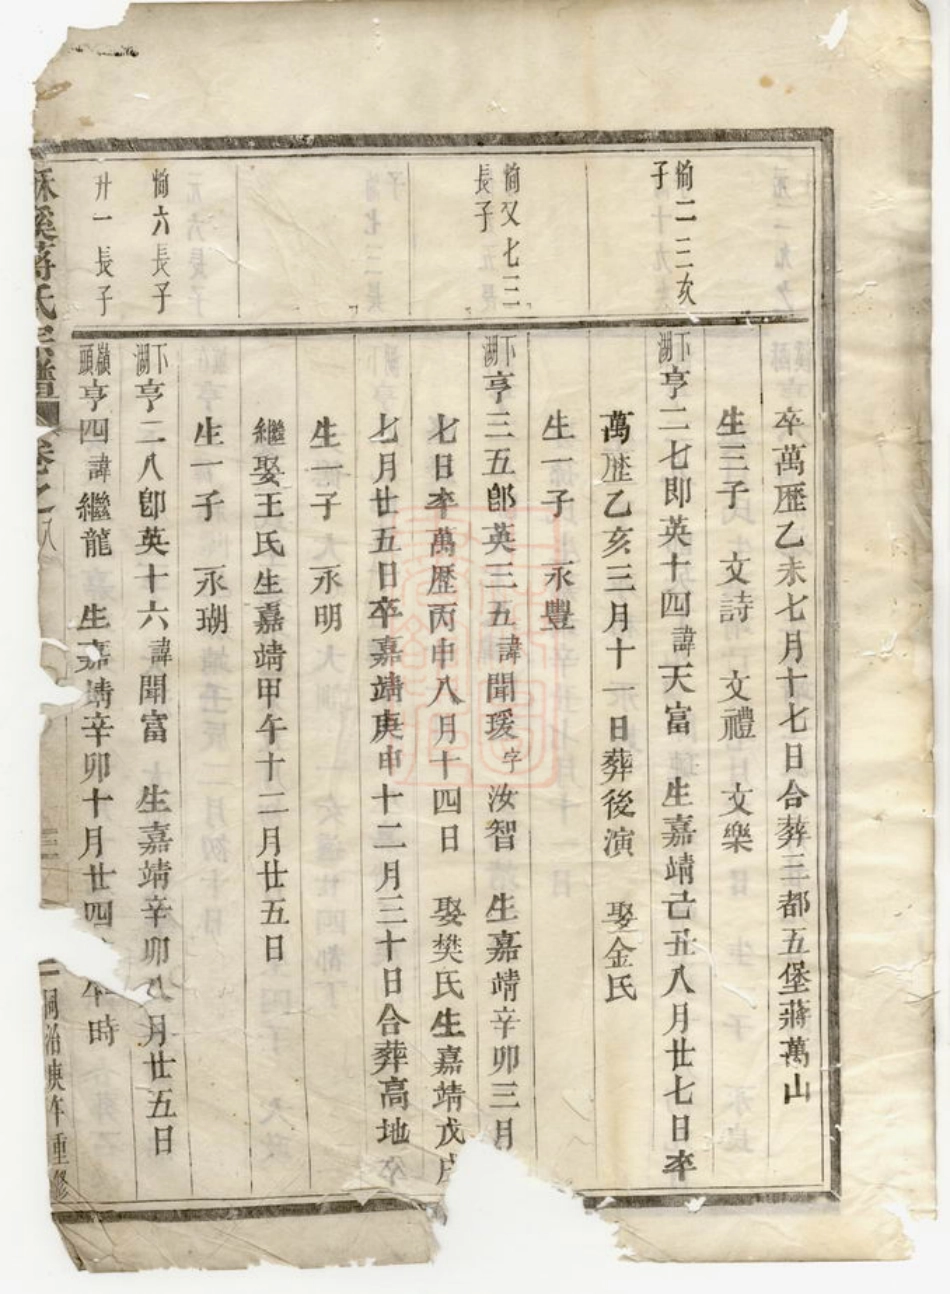 恂二三次
子
恂又七三
長子
恂六長子
升一長子
卒萬歷乙未七月十七日合葬三都五堡蔣萬山
生三子 文詩 文禮 文樂
下湖亨二七即英十四諱天富 生嘉靖己丑八月廿七日卒
萬歷乙亥三月十一日葬後演 娶金氏
生一子 永豐
下湖亨三五卽英三五諱聞瑗字汝智 生嘉靖辛卯三月
七日卒萬歷丙申八月十四日 娶樊氏生嘉靖戊
七月廿五日卒嘉靖庚申十二月三十日合葬高地
生一子 永明
繼娶王氏生嘉靖甲午十二月廿五日
生一子 永瑚
下湖亨二八卽英十六諱聞富 生嘉靖辛卯八月廿五日
嶺頭亨四諱繼龍 生嘉靖辛卯十月廿四 午時
溪蔣氏宗譜 卷之八 同治庚午重修